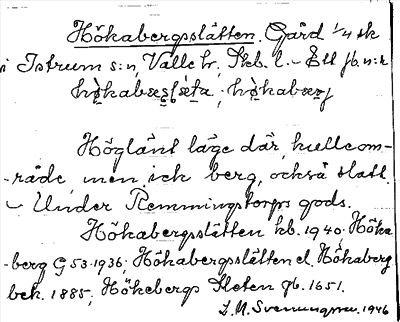 Hökabergsslätten. Gård 1/4 sk
i Istrum s:n, Valle hr, Skb. l. – Ett fb. n:r
hö̀kabæsʃæta, hö̀kabærj
Höglänt läge där kulleom-
-råde men ick berg, också slätt.
– Under Remmingstorps gods.
Hökabergsslätten kb. 1940. Höka
-berg G 53 1936; Hökabergsslätten el. Hökaberg
bek. 1885; Hökebergs Sleten gb. 1651.
L. M. Svenungsson. 1946